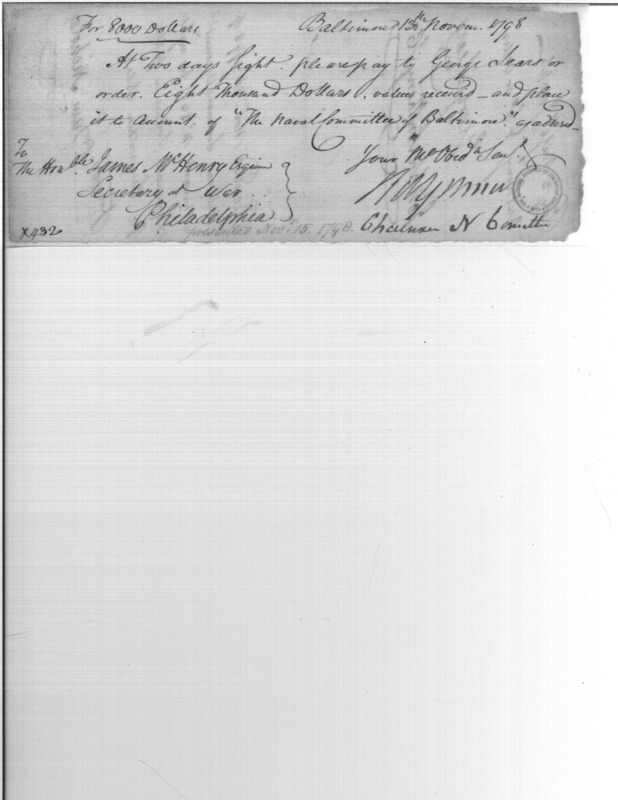 For 8000 Dollars
Baltimore 13th Novem. 1798
At Two days sight. please pay to George Sears or
order. Eight Thousand Dollars. value received – and place
it to account. of "The Naval Committee of Baltimore." as advised –
To
The Honble. James McHenry Esquire
Secretary at War
Philadelphia
Your Mo Obedt Servt.
Chairman N Committee
presented Novr. 15. 1798.
X432